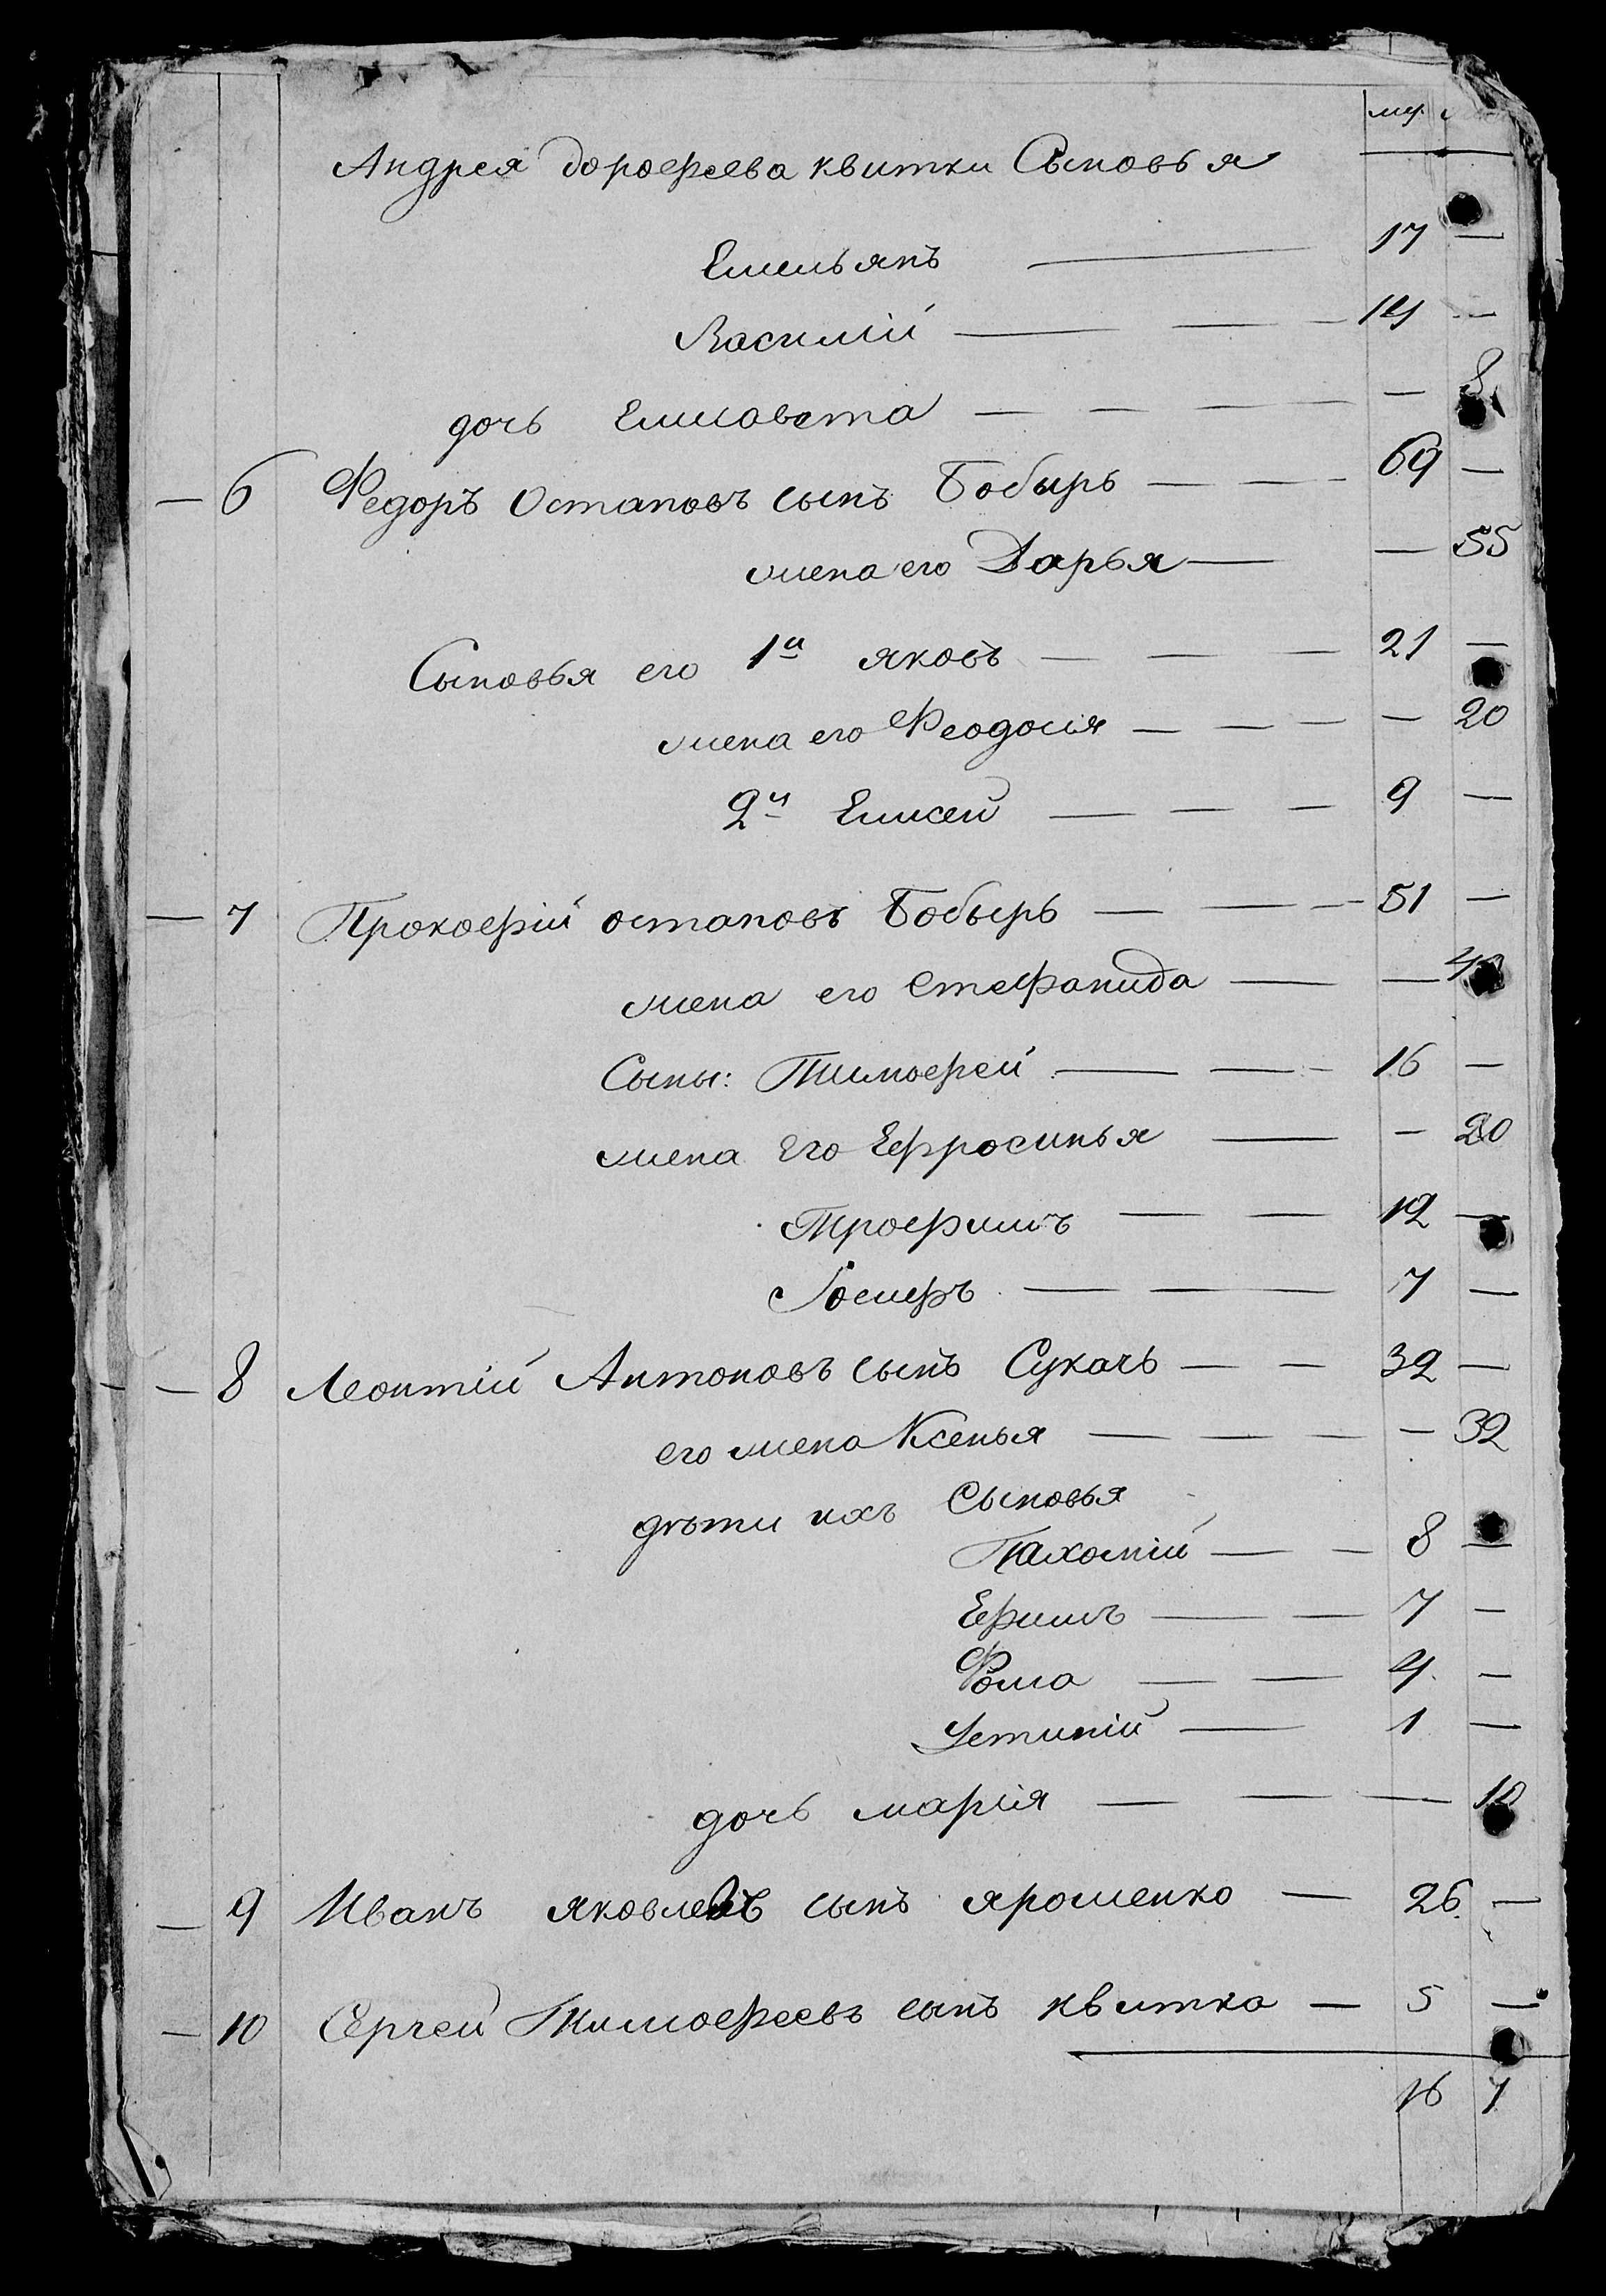 му.
Андрея дорофеева квитки Сыновья
Емельянъ — 17 —
Василій — — — 14 —
дочь Елисавета — — — — — 8
— 6 Федоръ Остаповъ сынъ Бобырь — — — 69 —
жена его Дарья — — 55
Сыновья его 1й яковъ — — — 21 —
жена его Феодосія — — — — 20
2й Елисей — — — 9 —
— 7 Прокофій остаповъ Бобырь — — — 51 —
жена его Стефанида — —
Сыны: Тимофей — — — 16 —
жена Его Ефросинья — — 20
Трофимъ — — 12 —
Іосифъ — — — 7 —
— 8 Леонтій Антоновъ сынъ Сукачь — — 32 —
его жена Ксенья — — — — — 32
дѣти ихъ Сыновья
Пахомій — — 8 —
Ефимъ — — 7 —
Фома — — 4 —
Устиній — 1 —
дочь марія — — — 10
— 9 Иванъ яковлевъ сынъ ярошенко — 26 —
— 10 Сергей Тимофеевъ сынъ квитка — 5 —
16 7